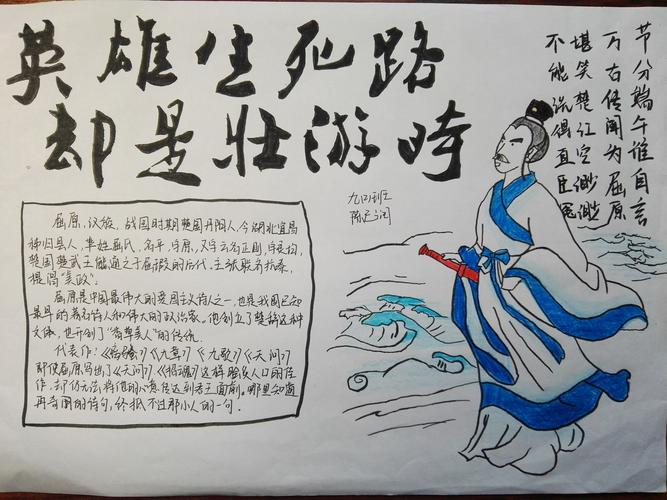 英雄生死路
却是壮游时
节分端午谁自言
万古传闻为屈原
堪笑楚江空渺渺
不能洗得直臣冤
班
屈原,汉族,战国时期楚国丹阳人,今湖北宜昌
秭归县人,芈姓屈氏,名平,字原,又字云名正则,字灵均,
楚国楚武王熊通之子屈瑕的后代,主张联齐抗秦,
提倡“美政”。
屈原是中国最伟大的爱国主义诗人之一,也是我国已知
最早的著名诗人和伟大的政治家。他创立了楚辞这种
文体,也开创了“香草美人”的传统.
代表作:《离骚》《九章》《九歌》《天问》
即便屈原写出了《天问》《招魂》这样脍炙人口的佳
作,却仍无法将他的心意传达到君王面前。哪里知道
再奇丽的诗句,终抵不过那小人的一句.